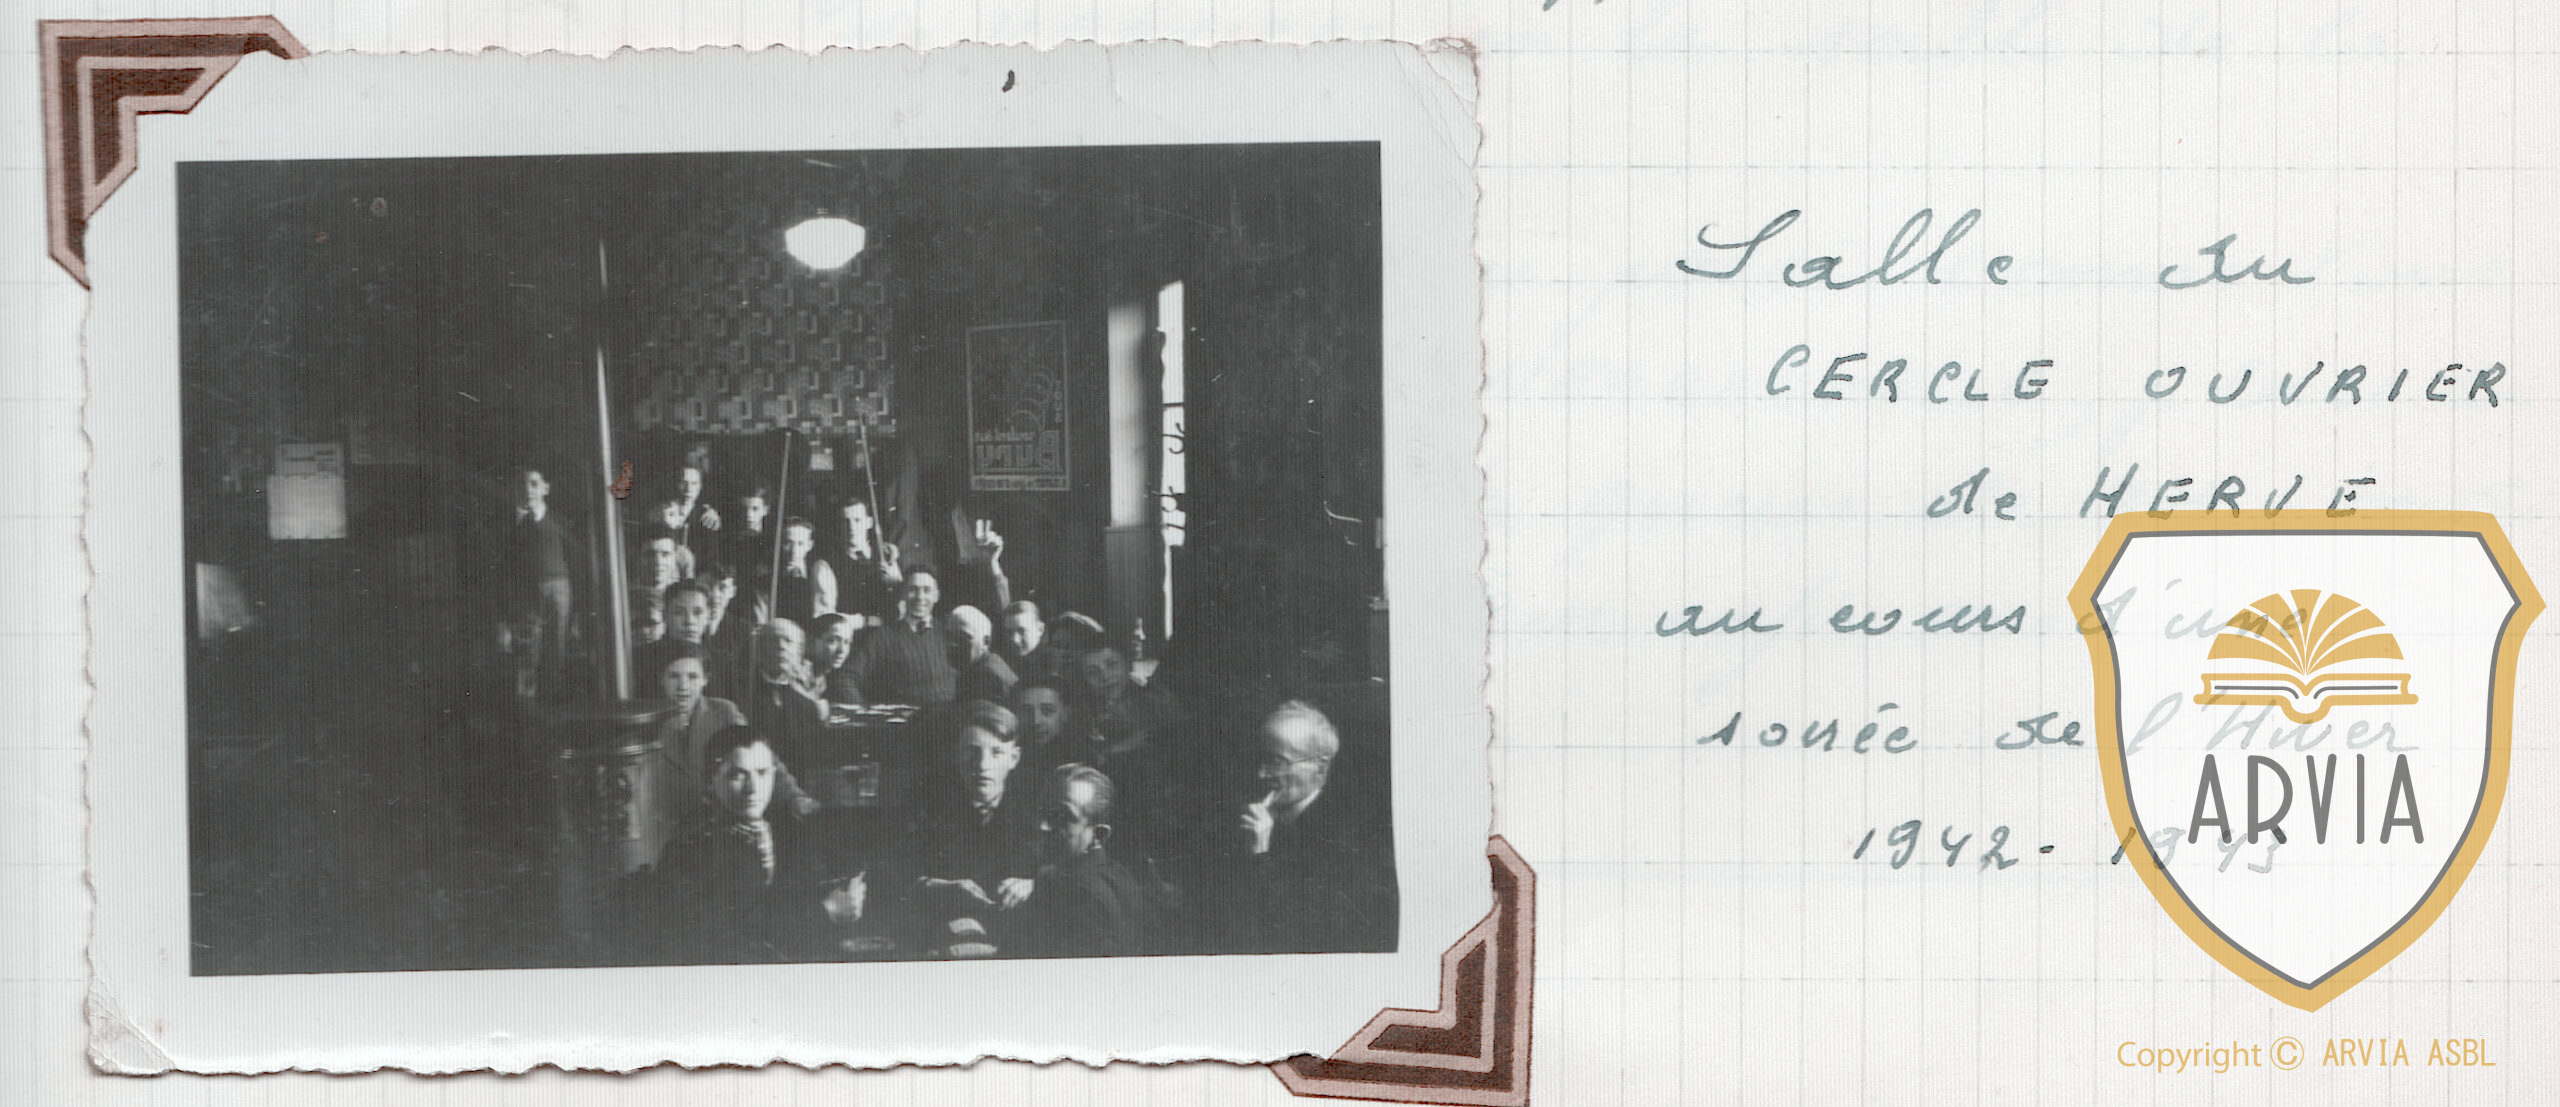 Salle du
CERCLE OUVRIER
de HERVE
au cours d'une
soirée de l'Hiver
1942-1943
ARVIA
Copyright © ARVIA ASBL